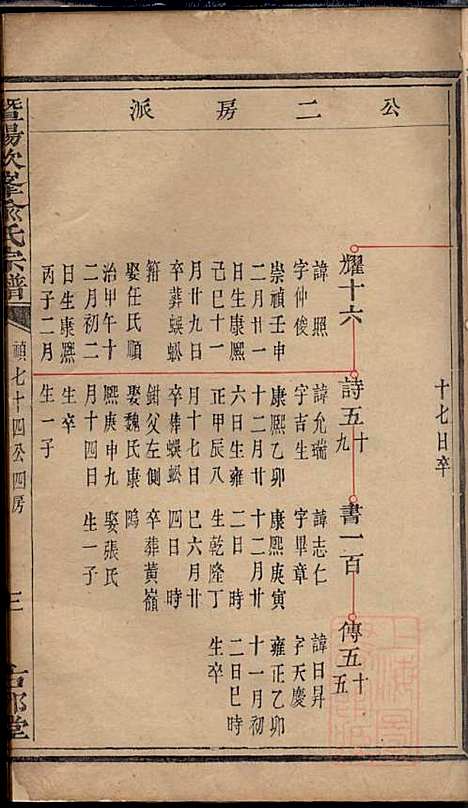 公二房派
十七日卒
耀十六
諱照
字仲俊
崇禎壬申
二月廿一
日生康熙
己巳十一
月廿九日
卒葬蜈蚣
箝
娶任氏順
治甲午十
二月初二
日生康熙
丙子二月
詩五十九
諱允瑞
字吉生
康熙乙卯
十二月廿
六日生雍
正甲辰八
月十七日
卒葬蜈蚣
鉗父左側
娶魏氏康
熙庚申九
月十四日
生卒
生一子
書一百
諱志仁
字畢章
康熙庚寅
十二月廿
二日 時
生乾隆丁
巳六月廿
四日 時
卒葬黃嶺
娶張氏
生一子
傳五十五
諱日昇
字天慶
雍正乙卯
十一月初
二日巳時
生卒
暨陽次峯俞氏宗譜
禎七十四公四房
三
堂